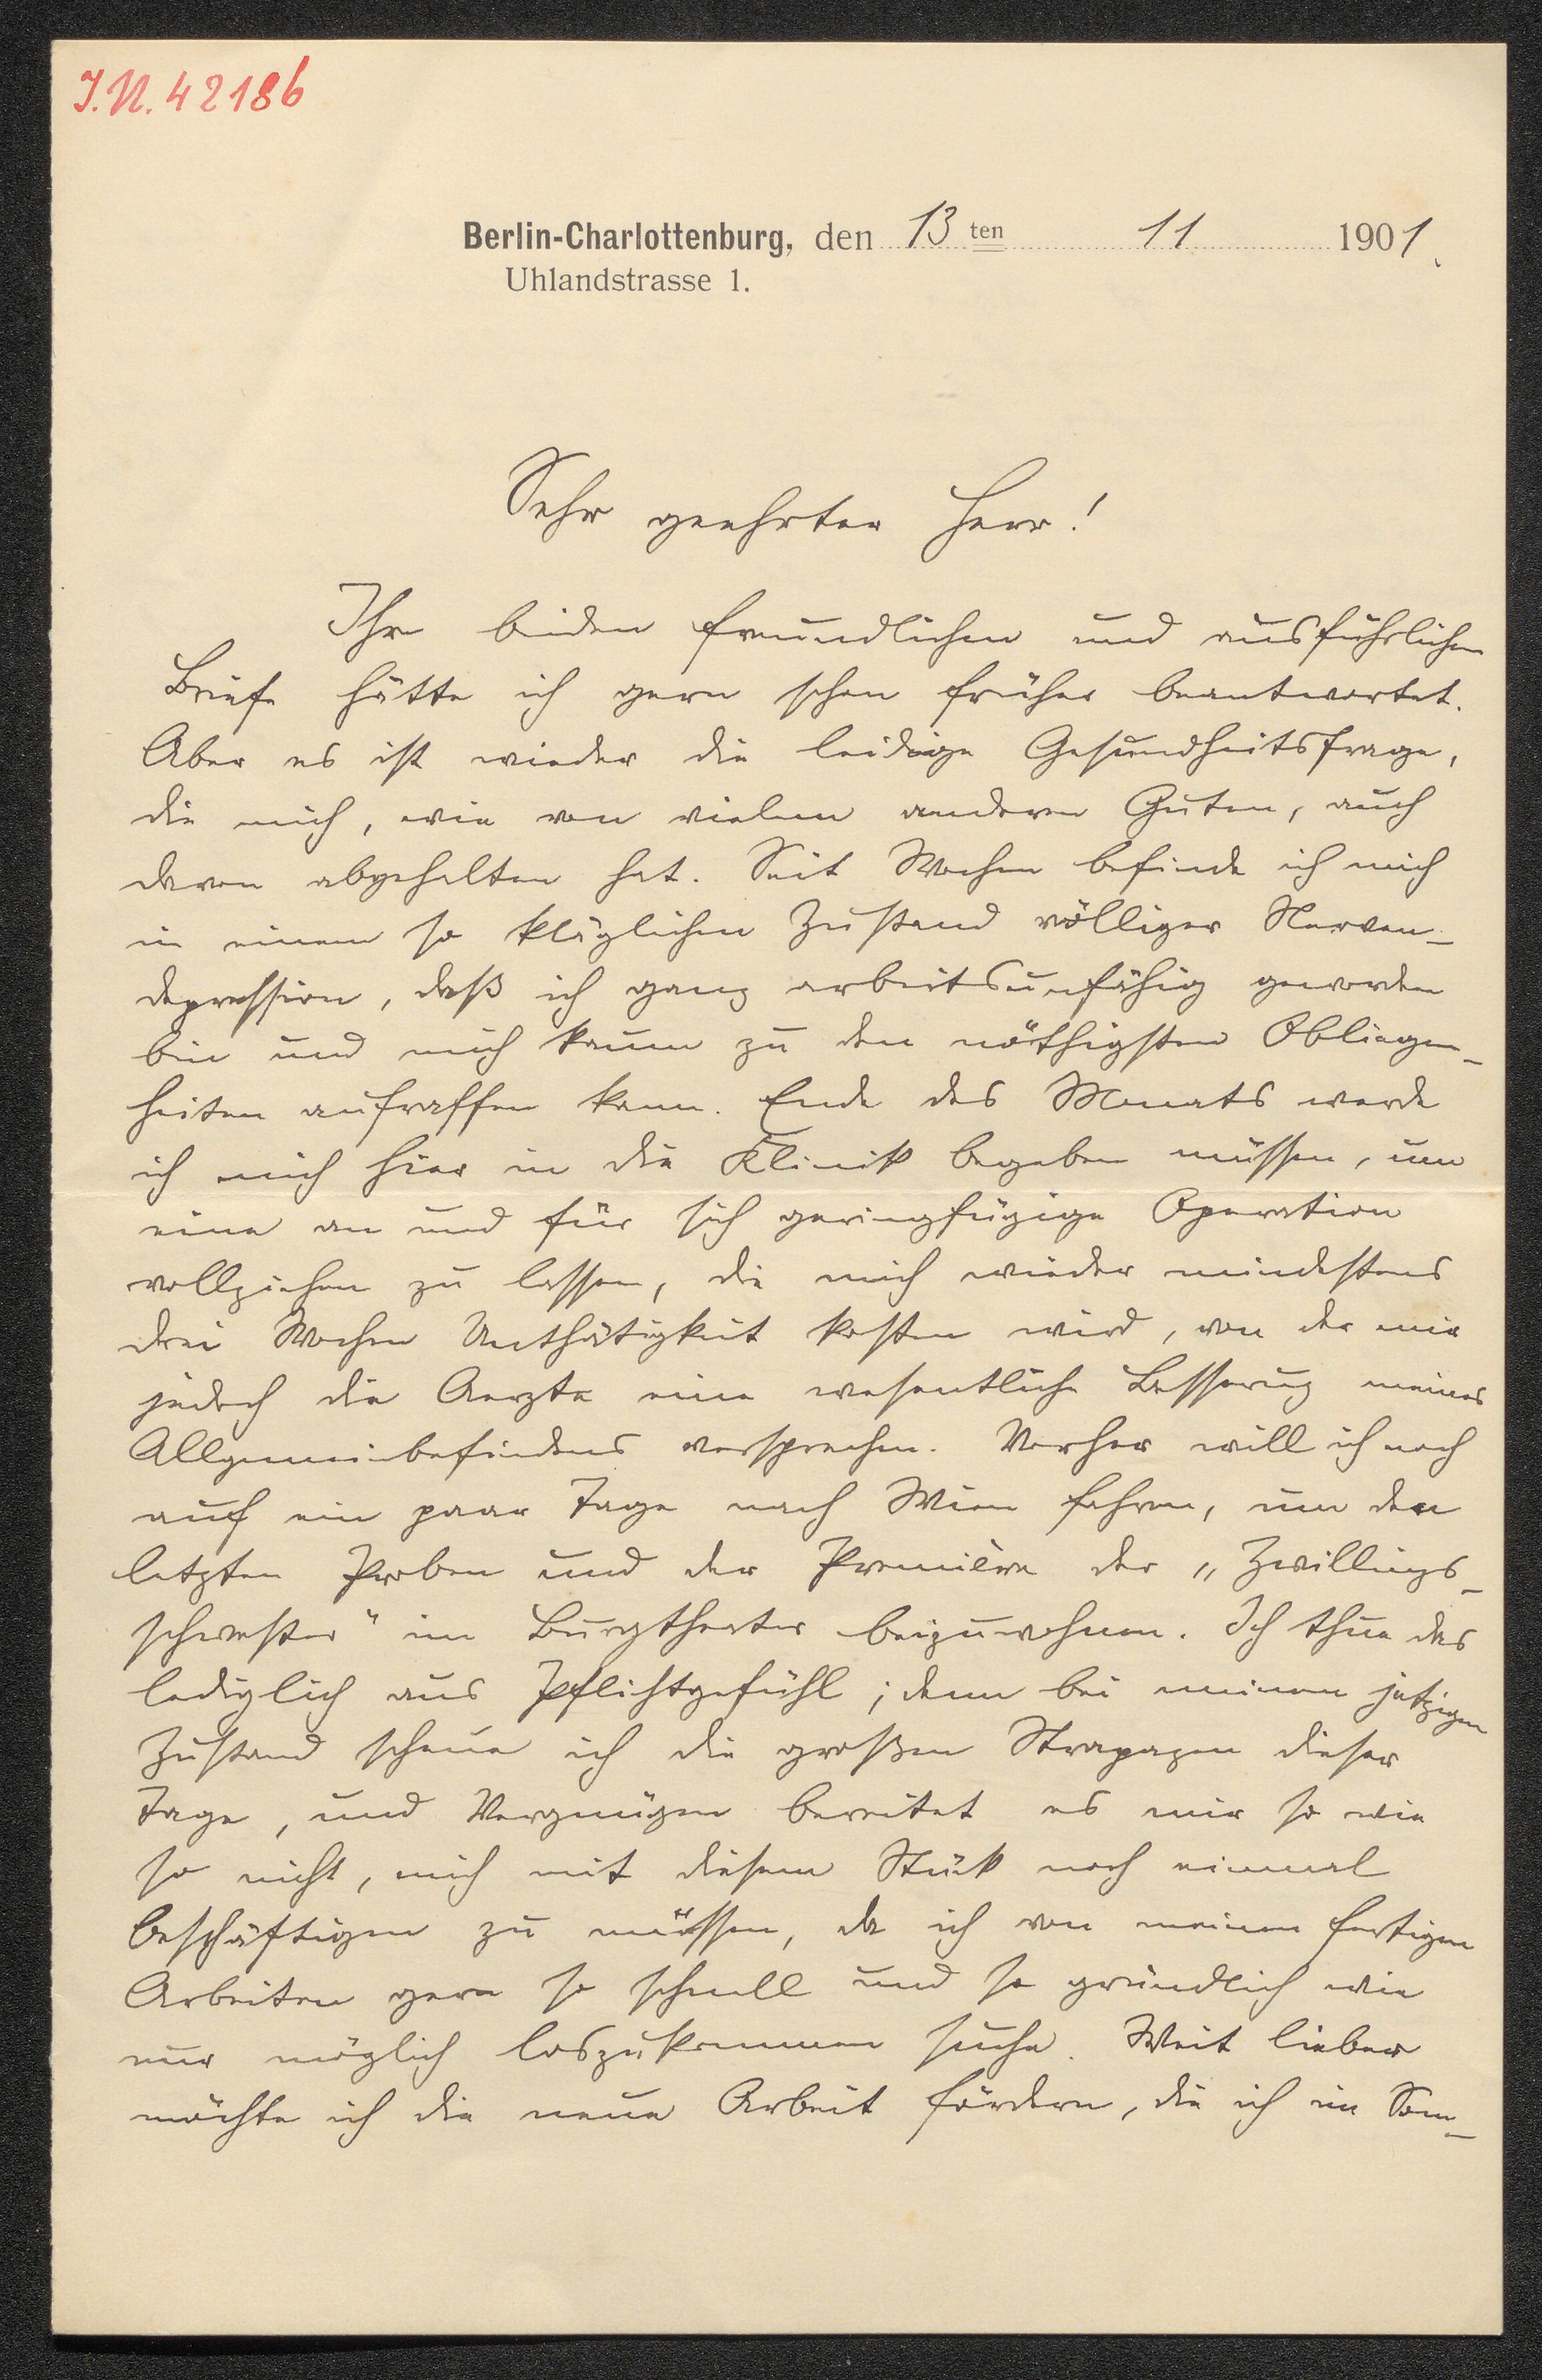 J.N. 42186
Berlin-Charlottenburg, den 13 ten 11 1901.
Uhlandstrasse 1.
Sehr geehrter Herr!
Ihre beiden freundlichen und ausführlichen
Briefe hätte ich gern schon früher beantwortet.
Aber es ist wieder die leidige Gesundheitsfrage,
die mich, wie von vielem anderen Guten, auch
davon abgehalten hat. Seit Wochen befinde ich mich
in einem so kläglichen Zustand völliger Nerven-
depression, daß ich ganz arbeitsunfähig geworden
bin und mich kaum zu den nöthigsten Obliegen-
heiten aufraffen kann. Ende des Monats werde
ich mich hier in die Klinik begeben müssen, um
eine an und für sich geringfügige Operation
vollziehen zu lassen, die mich wieder mindestens
drei Wochen Unthätigkeit kosten wird, von der mir
jedoch die Aerzte eine wesentliche Besserung meines
Allgemeinbefindens versprechen. Vorher will ich noch
auf ein paar Tage nach Wien fahren, um den
letzten Proben und der Première der „Zwillings-
schwester" im Burgtheater beizuwohnen. Ich thue das
lediglich aus Pflichtgefühl; denn bei meinem jetzigen
Zustand scheue ich die großen Strapazen dieser
Tage, und Vergnügen bereitet es mir so wie
so nicht, mich mit diesem Stück noch einmal
beschäftigen zu müssen, da ich von meinen fertigen
Arbeiten gern so schnell und so gründlich wie
nur möglich loszukommen suche. Weit lieber
möchte ich die neue Arbeit fördern, die ich im Som-